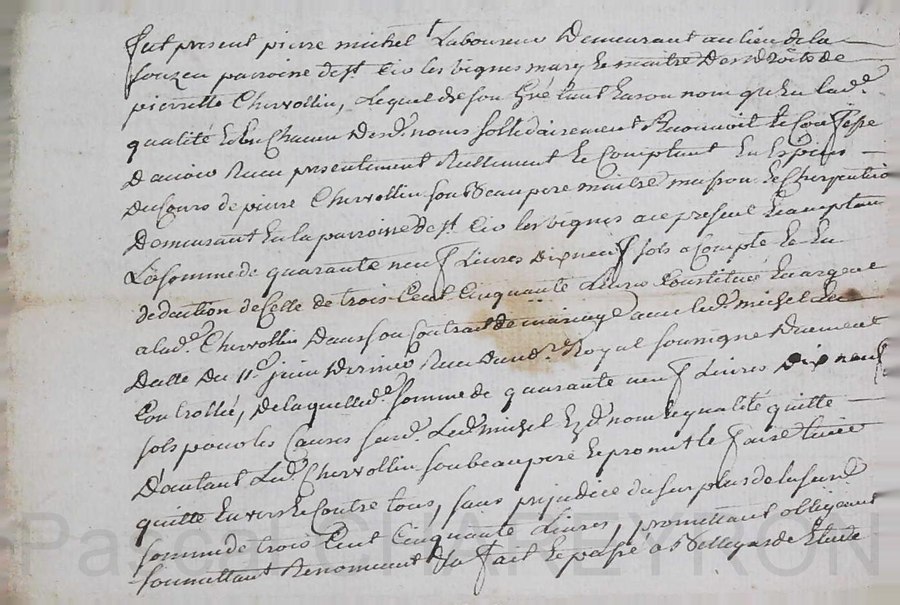 fut present pierre michel Laboureur Demeurant au lieu de la
souzeu parroisse de st Cir les vignes mary & maitre Des droits de
pierrette Chervollin, Lequel de son Gré tant En son nom qu'En lad.e
qualité & En Chacun Desd. noms sollidairement Reconnoit & Confesse
D'avoir Receu presentement Reellement & Comptant En Especes
Du Cours de pierre Chervollin son Beau pere maitre masson & Charpentier
Demeurant En la parroisse de st. Cir les vignes ace present & acceptant
La somme de quarante neuf Livres Dix neuf sols a Compte & En
deduction de Celle de trois Cent Cinquante Livres Constitué En argent
a lad.e Chervollin Dans son Contrait de mariage avec led. michel En
Datte Du 11.e juin Dernier Receu Dud. no.re Royal soussigné Duement
Controllé, De laquelle d.e somme de quarante neuf Livres Dix neuf
sols pour les Causes susd. Led. michel Ezd. nom & qualité quitte
D'autant Led. Chervollin son beau pere & promet le faire tenir
quitte Envers & Contre tous, sans prejudice du surplus de la susd.
somme de trois Cent Cinquante Livres, promettant obligeant
soumettant Renoncant & fait & passé a Bellegarde Etude
Pascal CHAREYRON